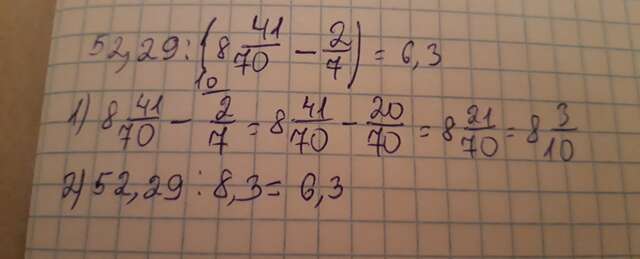 52,29 : (8 41/70 - 2/7) = 6,3
1) 8 41/70 - 10 2/7 = 8 41/70 - 20/70 = 8 21/70 = 8 3/10
2) 52,29 : 8,3 = 6,3